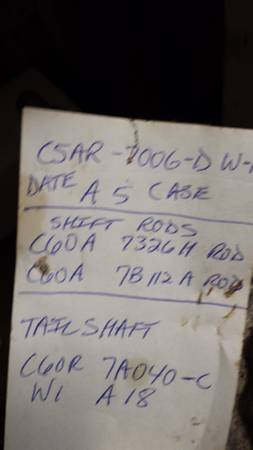 C5AR-7006-D W-
DATE A5 CASE
SHIFT RODS
C60A 7326H ROD
C60A 7B112A ROD
TAILSHAFT
C60R 7A040-C
W1 A18